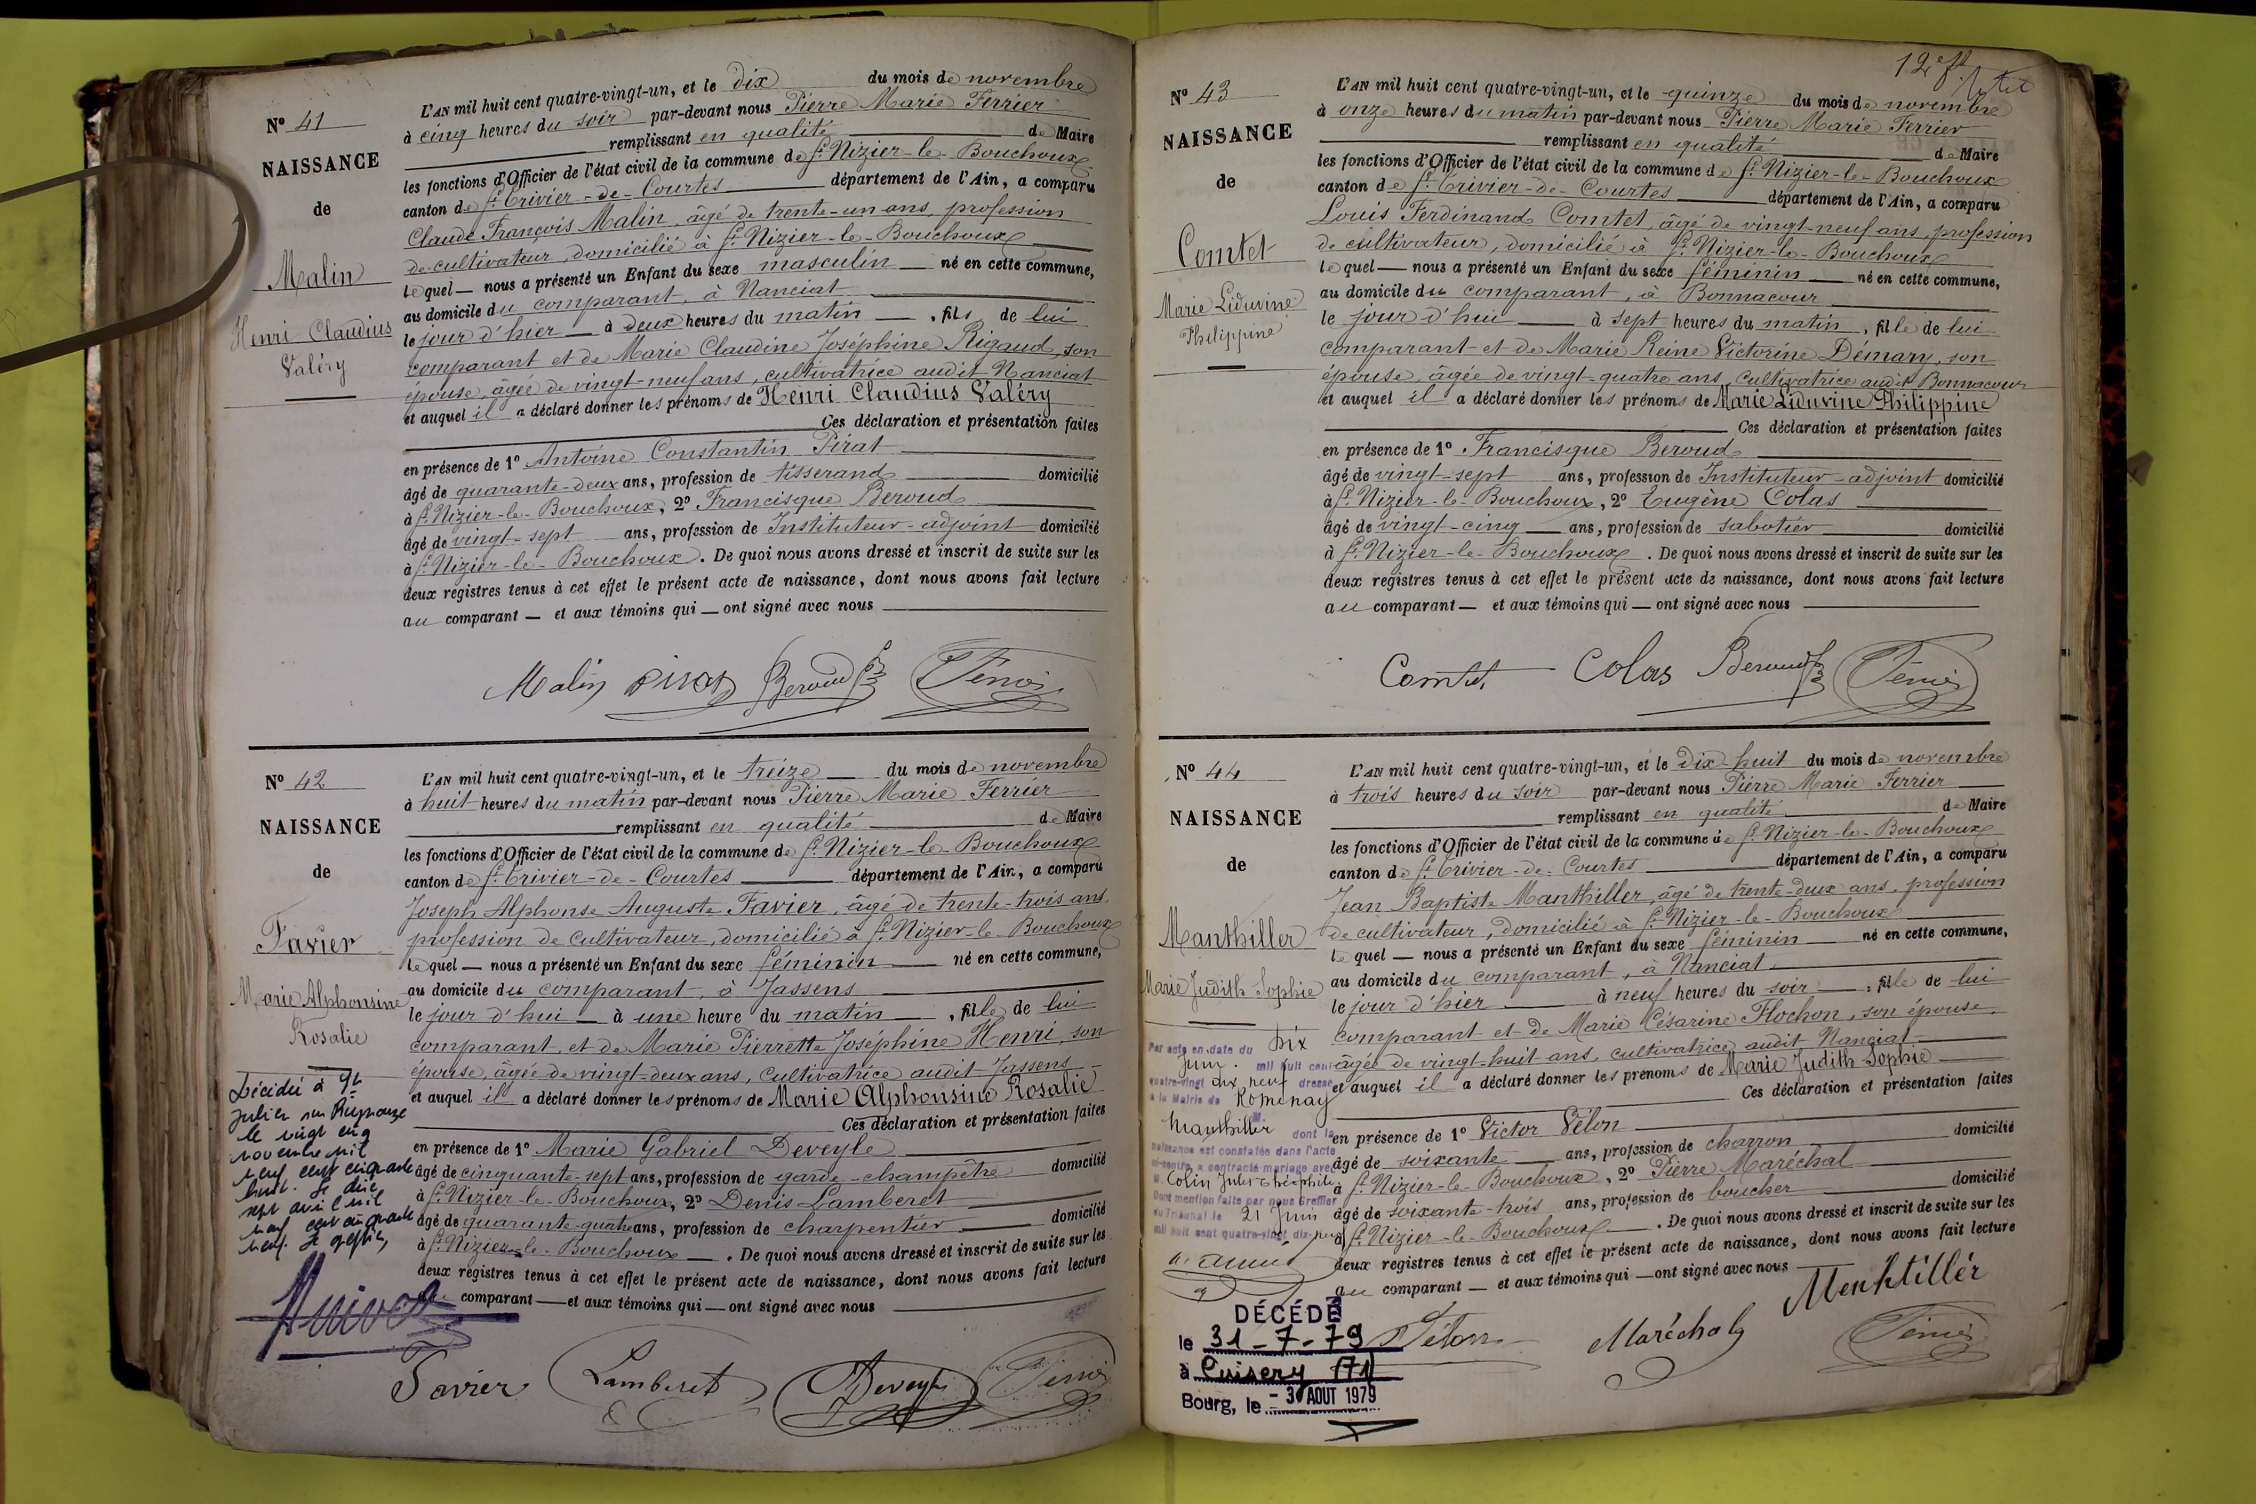 N° 41
NAISSANCE
de
Malin
Henri Claudius
Valéry
L'AN mil huit cent quatre-vingt-un, et le dix du mois de novembre
à cinq heures du soir par-devant nous Pierre Marie Ferrier
remplissant en qualité de Maire
les fonctions d'Officier de l'état civil de la commune de St Nizier-le-Bouchoux
canton de St Trivier-de-Courtes département de l'Ain, a comparu
Claude François Malin, âgé de trente-un ans, profession
de cultivateur, domicilié à St Nizier-le-Bouchoux
lequel — nous a présenté un Enfant du sexe masculin — né en cette commune,
au domicile du comparant, à Nanciat
le jour d'hier — à deux heures du matin —, fils de lui
comparant et de Marie Claudine Joséphine Rigaud, son
épouse, âgée de vingt-neuf ans, cultivatrice audit Nanciat
et auquel il a déclaré donner les prénoms de Henri Claudius Valéry
Ces déclaration et présentation faites
en présence de 1° Antoine Constantin Pirat
âgé de quarante-deux ans, profession de tisserand domicilié
à St Nizier-le-Bouchoux, 2° Francisque Beroud
âgé de vingt-sept ans, profession de Instituteur-adjoint domicilié
à St Nizier-le-Bouchoux. De quoi nous avons dressé et inscrit de suite sur les
deux registres tenus à cet effet le présent acte de naissance, dont nous avons fait lecture
au comparant — et aux témoins qui — ont signé avec nous
Malin Pirat Beroud Ferrier
N° 42
NAISSANCE
de
Favier
Marie Alphonsine
Rosalie
Décédée à St
Julien sur Reyssouze
le vingt cinq
novembre mil
neuf cent cinquante
huit. Le dix
sept avril mil
neuf cent cinquante
neuf. Le greffier,
L'AN mil huit cent quatre-vingt-un, et le treize — du mois de novembre
à huit heures du matin par-devant nous Pierre Marie Ferrier
remplissant en qualité de Maire
les fonctions d'Officier de l'état civil de la commune de St Nizier-le-Bouchoux
canton de St Trivier-de-Courtes département de l'Ain, a comparu
Joseph Alphonse Auguste Favier, âgé de trente-trois ans,
profession de cultivateur, domicilié à St Nizier-le-Bouchoux
lequel — nous a présenté un Enfant du sexe féminin — né en cette commune,
au domicile du comparant, à Jassens
le jour d'hui — à une heure du matin —, fille de lui
comparant et de Marie Pierrette Joséphine Henri, son
épouse, âgée de vingt-deux ans, cultivatrice audit Jassens
et auquel il a déclaré donner les prénoms de Marie Alphonsine Rosalie
Ces déclaration et présentation faites
en présence de 1° Marie Gabriel Deveyle
âgé de cinquante-sept ans, profession de garde-champêtre domicilié
à St Nizier-le-Bouchoux, 2° Denis Lamberet
âgé de quarante-quatre ans, profession de charpentier domicilié
à St Nizier-le-Bouchoux —. De quoi nous avons dressé et inscrit de suite sur les
deux registres tenus à cet effet le présent acte de naissance, dont nous avons fait lecture
au comparant — et aux témoins qui — ont signé avec nous
Favier Lamberet Deveyle Ferrier
N° 43
NAISSANCE
de
Comtet
Marie Liduvine
Philippine
L'AN mil huit cent quatre-vingt-un, et le quinze du mois de novembre
à onze heures du matin par-devant nous Pierre Marie Ferrier
remplissant en qualité de Maire
les fonctions d'Officier de l'état civil de la commune de St Nizier-le-Bouchoux
canton de St Trivier-de-Courtes département de l'Ain, a comparu
Louis Ferdinand Comtet, âgé de vingt-neuf ans, profession
de cultivateur, domicilié à St Nizier-le-Bouchoux
lequel — nous a présenté un Enfant du sexe féminin — né en cette commune,
au domicile du comparant, à Bonnacour
le jour d'hui — à sept heures du matin, fille de lui
comparant et de Marie Reine Victorine Démary, son
épouse, âgée de vingt-quatre ans, cultivatrice audit Bonnacour
et auquel il a déclaré donner les prénoms de Marie Liduvine Philippine
Ces déclaration et présentation faites
en présence de 1° Francisque Beroud
âgé de vingt-sept ans, profession de Instituteur-adjoint domicilié
à St Nizier-le-Bouchoux, 2° Eugène Colas
âgé de vingt-cinq — ans, profession de sabotier domicilié
à St Nizier-le-Bouchoux. De quoi nous avons dressé et inscrit de suite sur les
deux registres tenus à cet effet le présent acte de naissance, dont nous avons fait lecture
au comparant — et aux témoins qui — ont signé avec nous
Comtet Colas Beroud Ferrier
N° 44
NAISSANCE
de
Manthiller
Marie Judith Sophie
Par acte en date du dix
Juin mil huit cent
quatre-vingt dix neuf dressé
à la Mairie de Romenay
M. Manthiller dont la
naissance est constatée dans l'acte
ci-contre, a contracté mariage avec
M. Colin Jules Théophile
Dont mention faite par nous Greffier
du Tribunal le 21 Juin
mil huit cent quatre-vingt dix-neuf
DÉCÉDÉE
le 31-7-79
à Cuisery (71)
Bourg, le - 3 AOUT 1979
L'AN mil huit cent quatre-vingt-un, et le dix huit du mois de novembre
à trois heures du soir par-devant nous Pierre Marie Ferrier
remplissant en qualité de Maire
les fonctions d'Officier de l'état civil de la commune de St Nizier-le-Bouchoux
canton de St Trivier-de-Courtes département de l'Ain, a comparu
Jean Baptiste Manthiller, âgé de trente-deux ans, profession
de cultivateur, domicilié à St Nizier-le-Bouchoux
lequel — nous a présenté un Enfant du sexe féminin — né en cette commune,
au domicile du comparant, à Nanciat
le jour d'hier — à neuf heures du soir —, fille de lui
comparant et de Marie Césarine Flochon, son épouse,
âgée de vingt-huit ans, cultivatrice audit Nanciat
et auquel il a déclaré donner les prénoms de Marie Judith Sophie
Ces déclaration et présentation faites
en présence de 1° Victor Vélon
âgé de soixante — ans, profession de charron domicilié
à St Nizier-le-Bouchoux, 2° Pierre Maréchal
âgé de soixante-trois ans, profession de boucher domicilié
à St Nizier-le-Bouchoux —. De quoi nous avons dressé et inscrit de suite sur les
deux registres tenus à cet effet le présent acte de naissance, dont nous avons fait lecture
au comparant — et aux témoins qui — ont signé avec nous
Menhtiller
Vélon Maréchal Ferrier